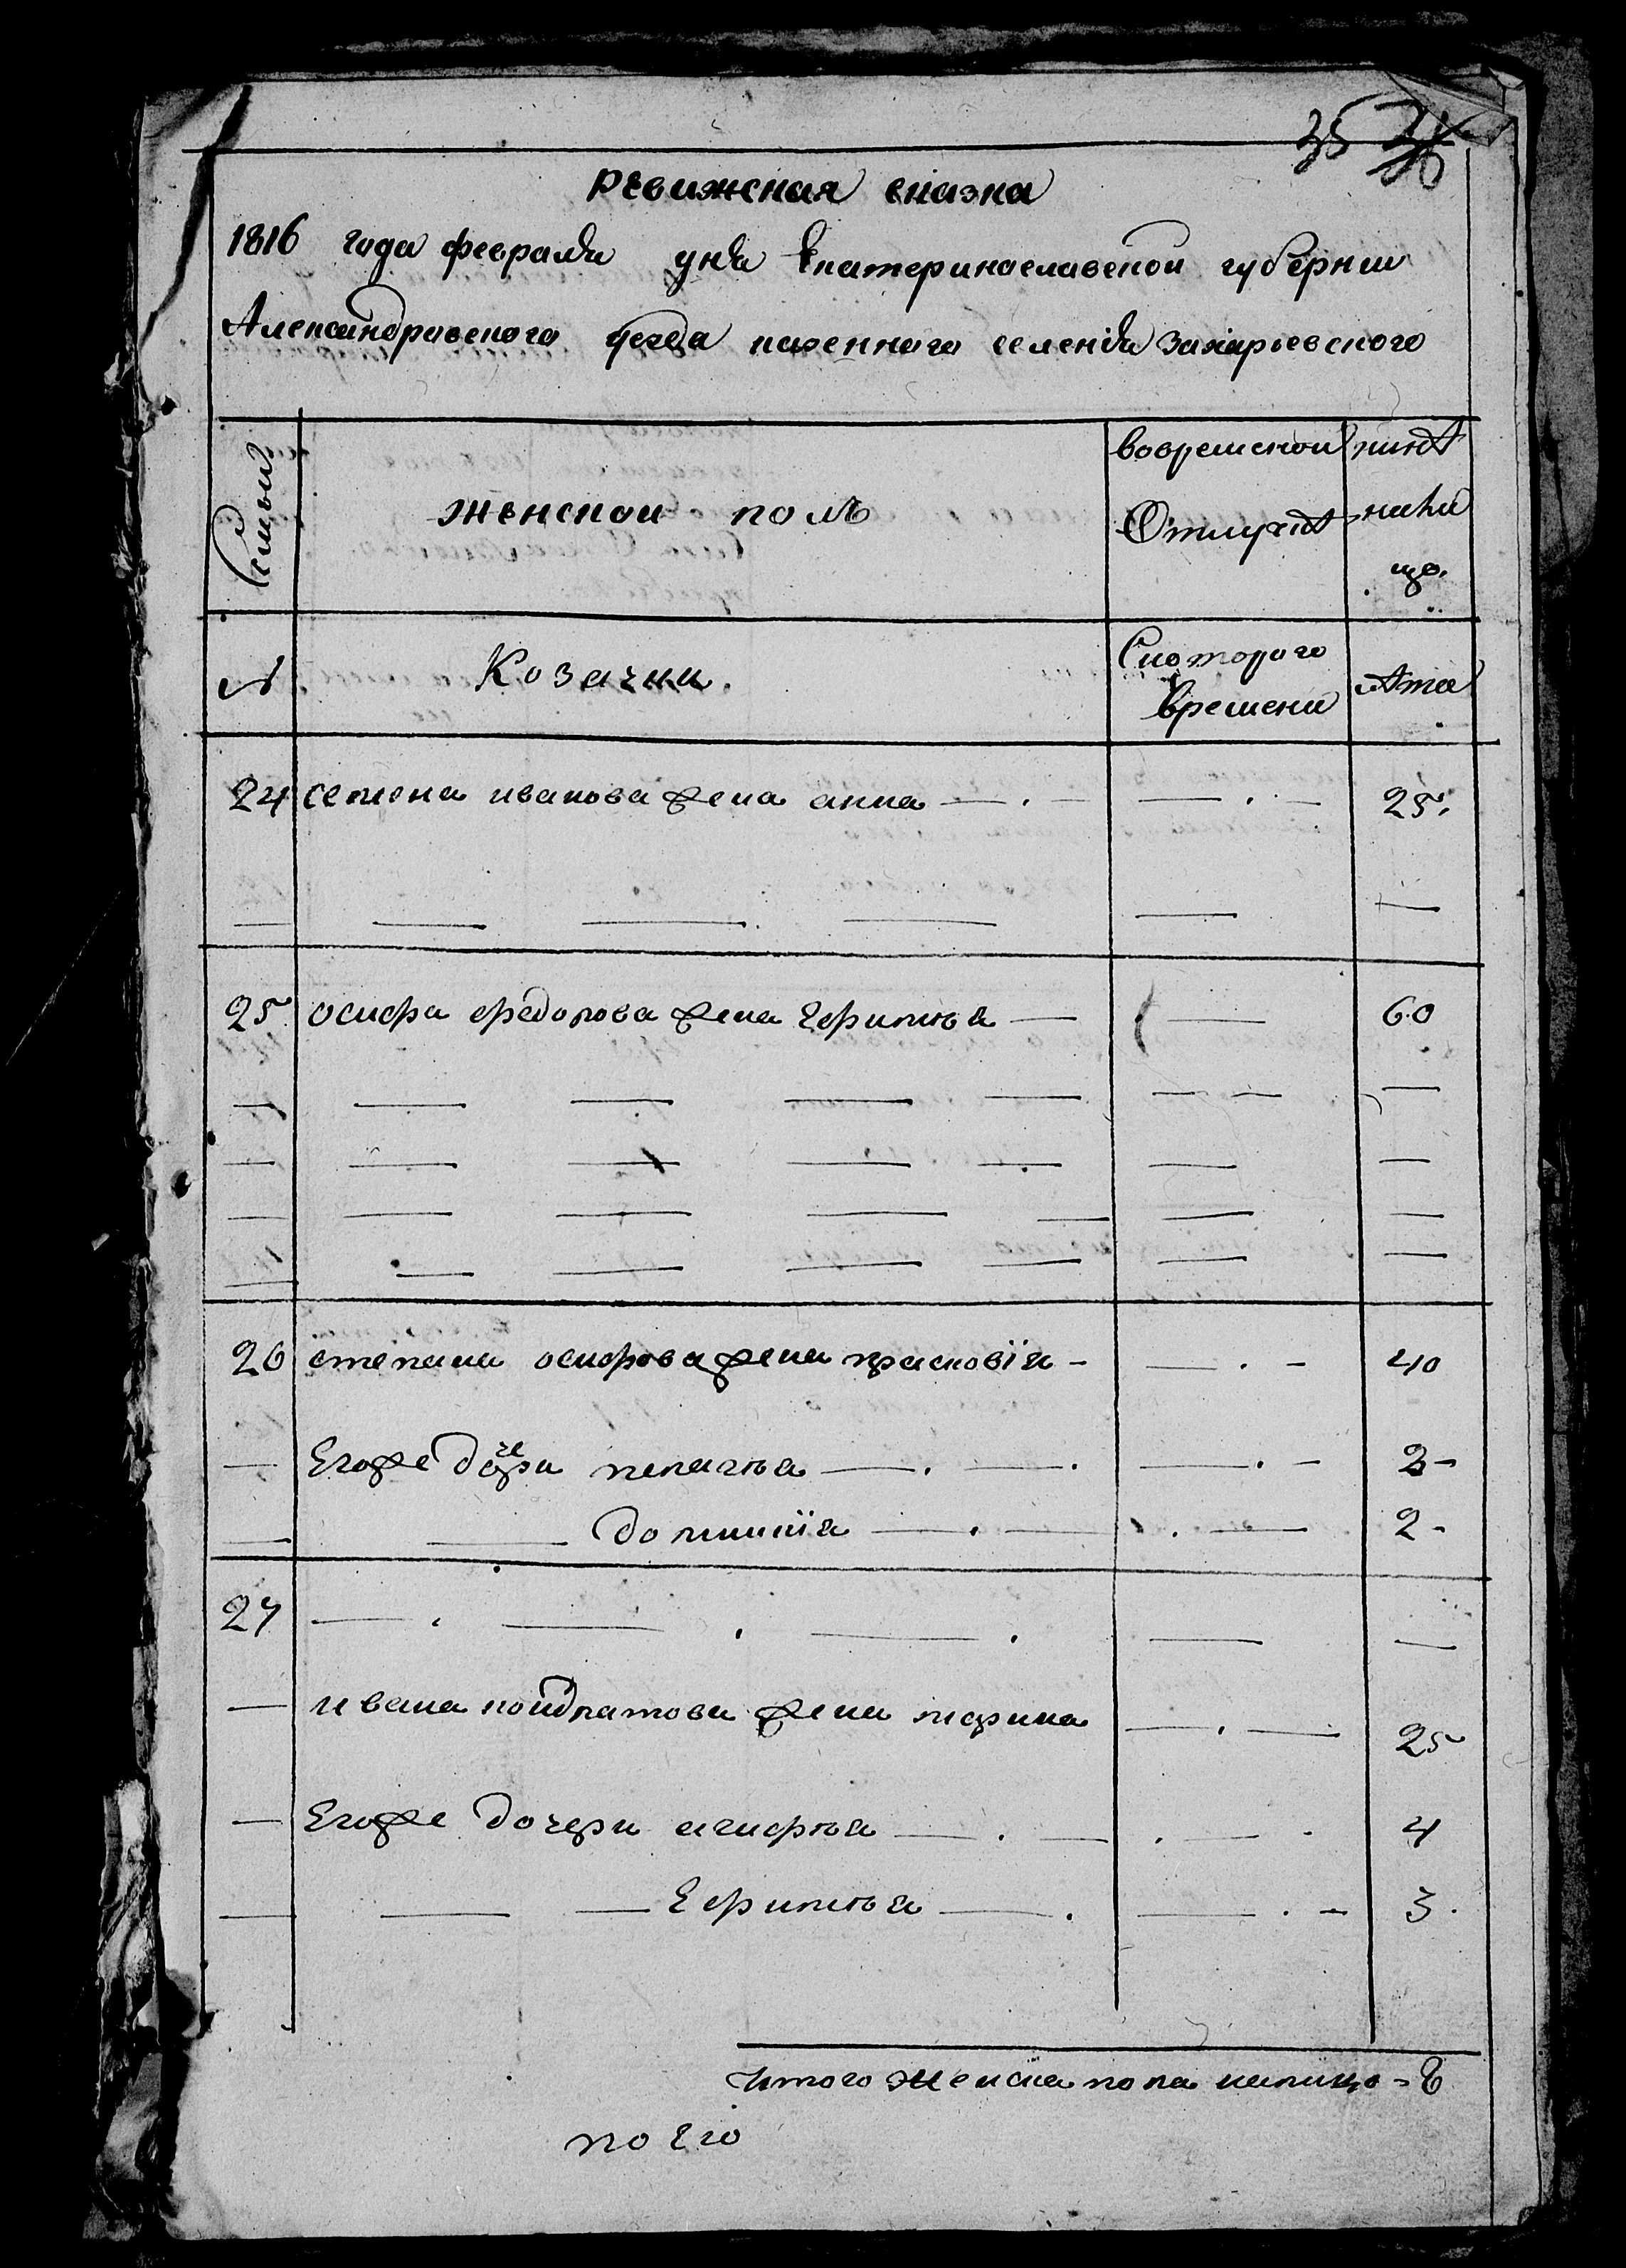 35
Ревижская сказка
1816 года февраля дня Екатеринославской губернии
Александровского уезда казенного селенiя Захарьевского
Семьи
женской полъ
вовременой
Отлучкѣ
нинѣ
на
лицо.
№
Козачки.
Скоторого
времени
лѣта
24 семена иванова жена анна — . — — . — 25.
— — — — — —
25 осифа федорова жена Ефимья — — 60
— — — — — — —
— — — — — — —
— — — — — — —
— — — — — — —
26 степана осифова жена прасковiя - — . - 40
— Егоже дочери пелагья — . — . — . - 3-
— — домникiя — . — . — 2-
27 — . — . — . — —
— ивана кондратова жена марина — . — 25
— Егоже дочери агафья — . — . — . 4
— — — Ефимья — . — . - 3.
Итого женска пола налицо - 8
по его